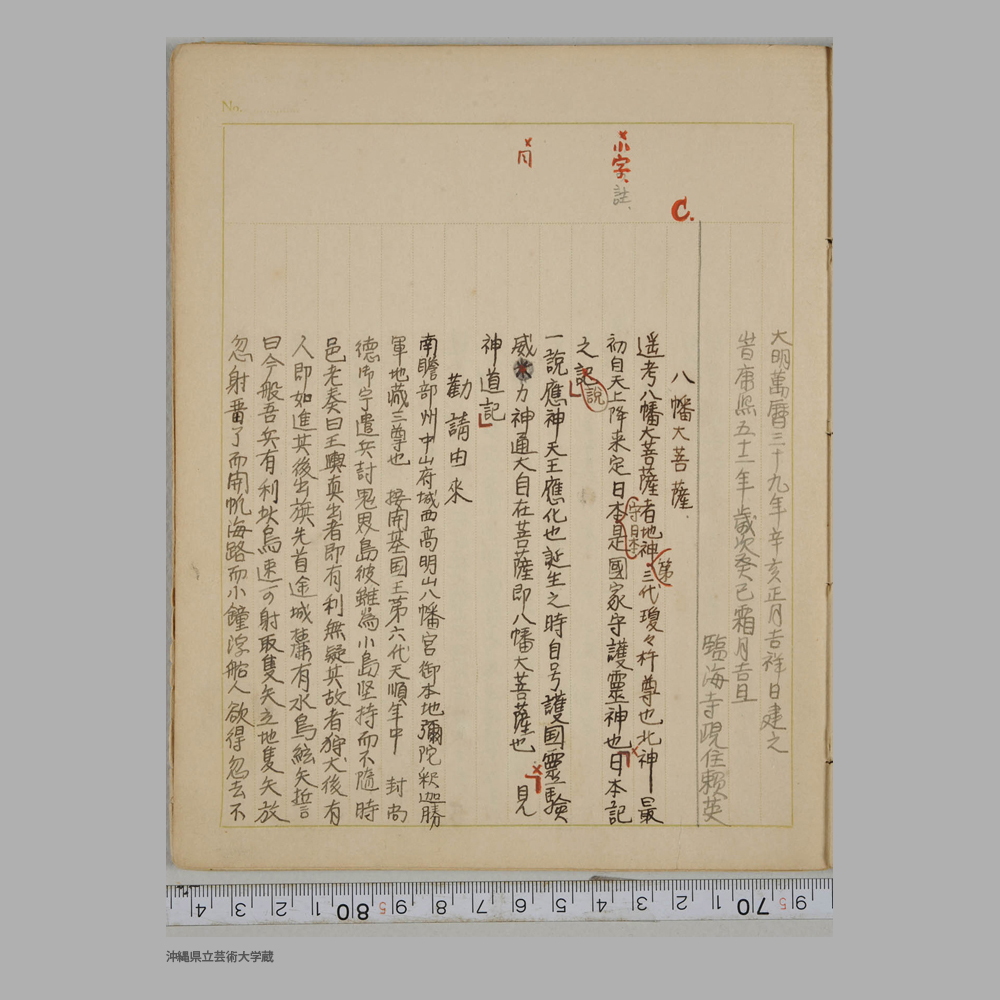 大明萬暦三十九年辛亥正月吉祥日建之
昔康熙五十二年歳次癸已霜月吉旦
臨海寺現住頼英
C.
八幡大菩薩
遥考八幡大菩薩者地神三代瓊々杵尊也此神最
第
小字
註
初自天上降来定日本是國家守護靈神也日本記
守日本
之記
説
一説應神天王應化也誕生之時自号護国靈驗
威力神通大自在菩薩即八幡大菩薩也 見
神道記
勸請由來
南瞻部州中山府城西高明山八幡宮御本地彌陀釈迦勝
軍地蔵三尊也 按開基国王第六代天順年中 封尚
德御宇遣兵討鬼界島彼雖為小島坚持而不隨時
邑老奏曰王輿真出者即有利無疑其故者狩犬後有
人即如進其後出旗先首途城麓有水鳥絃矢誓
曰今般吾兵有利於烏速可射取隻矢立地隻矢放
忽射番了而開帆海路而小鐘浮船人欲得忽去不
No.
4 3 2 1 80 9 8 7 6 5 4 3 2 1 70 9
沖縄県立芸術大学蔵